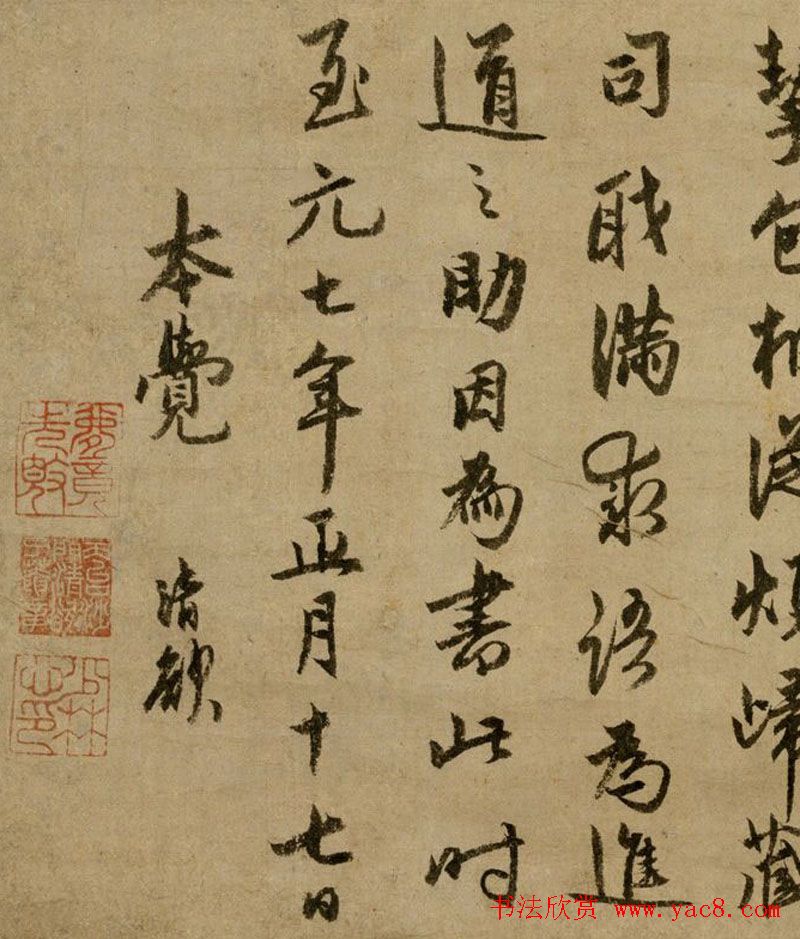 挈包相從煩歸藏
司職滿求語為進
道之助因為書此時
至元七年正月十七日
本覺 清欲
书法欣赏 www.yac8.com